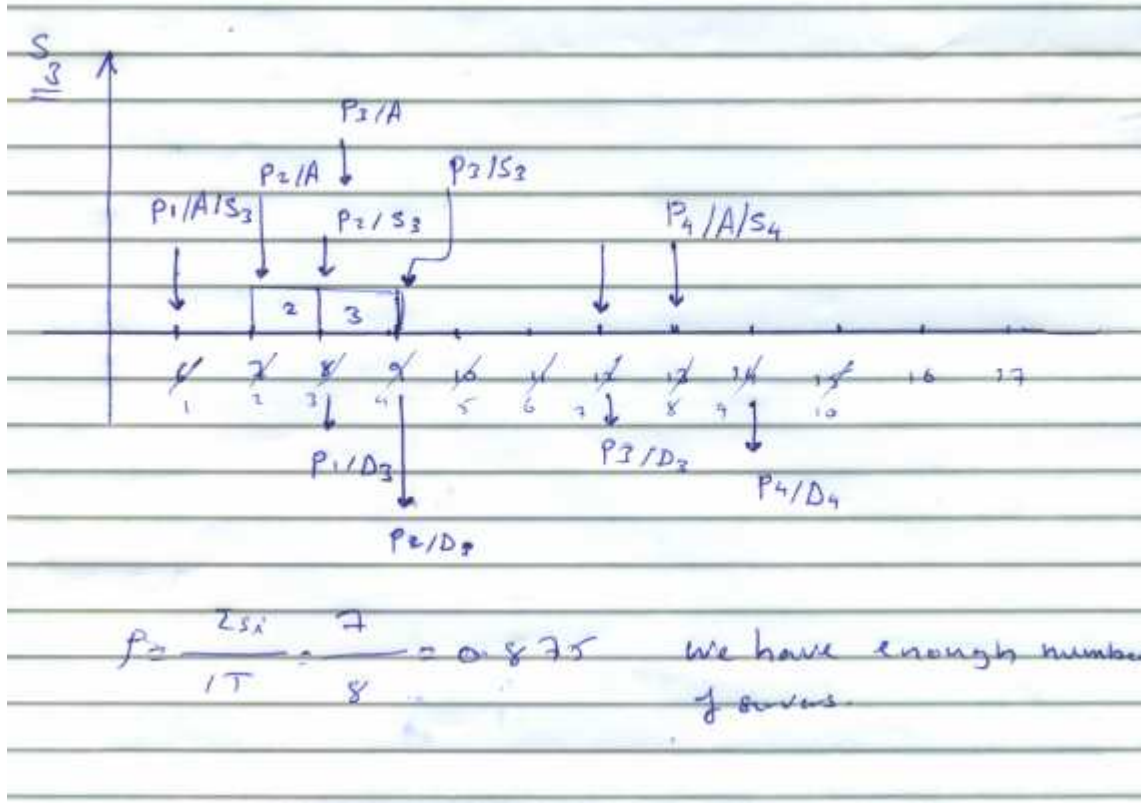 S
3
P3/A
P2/A
P3/S3
P1/A/S3
P2/S3
P4/A/S4
2 3
6 7 8 9 10 11 12 13 14 15 16 17
1 2 3 4 5 6 7 8 9 10
P1/D3
P3/D3
P4/D4
P2/D3
ρ = Σsi / 1T = 7 / 8 = 0.875 We have enough numbe
of